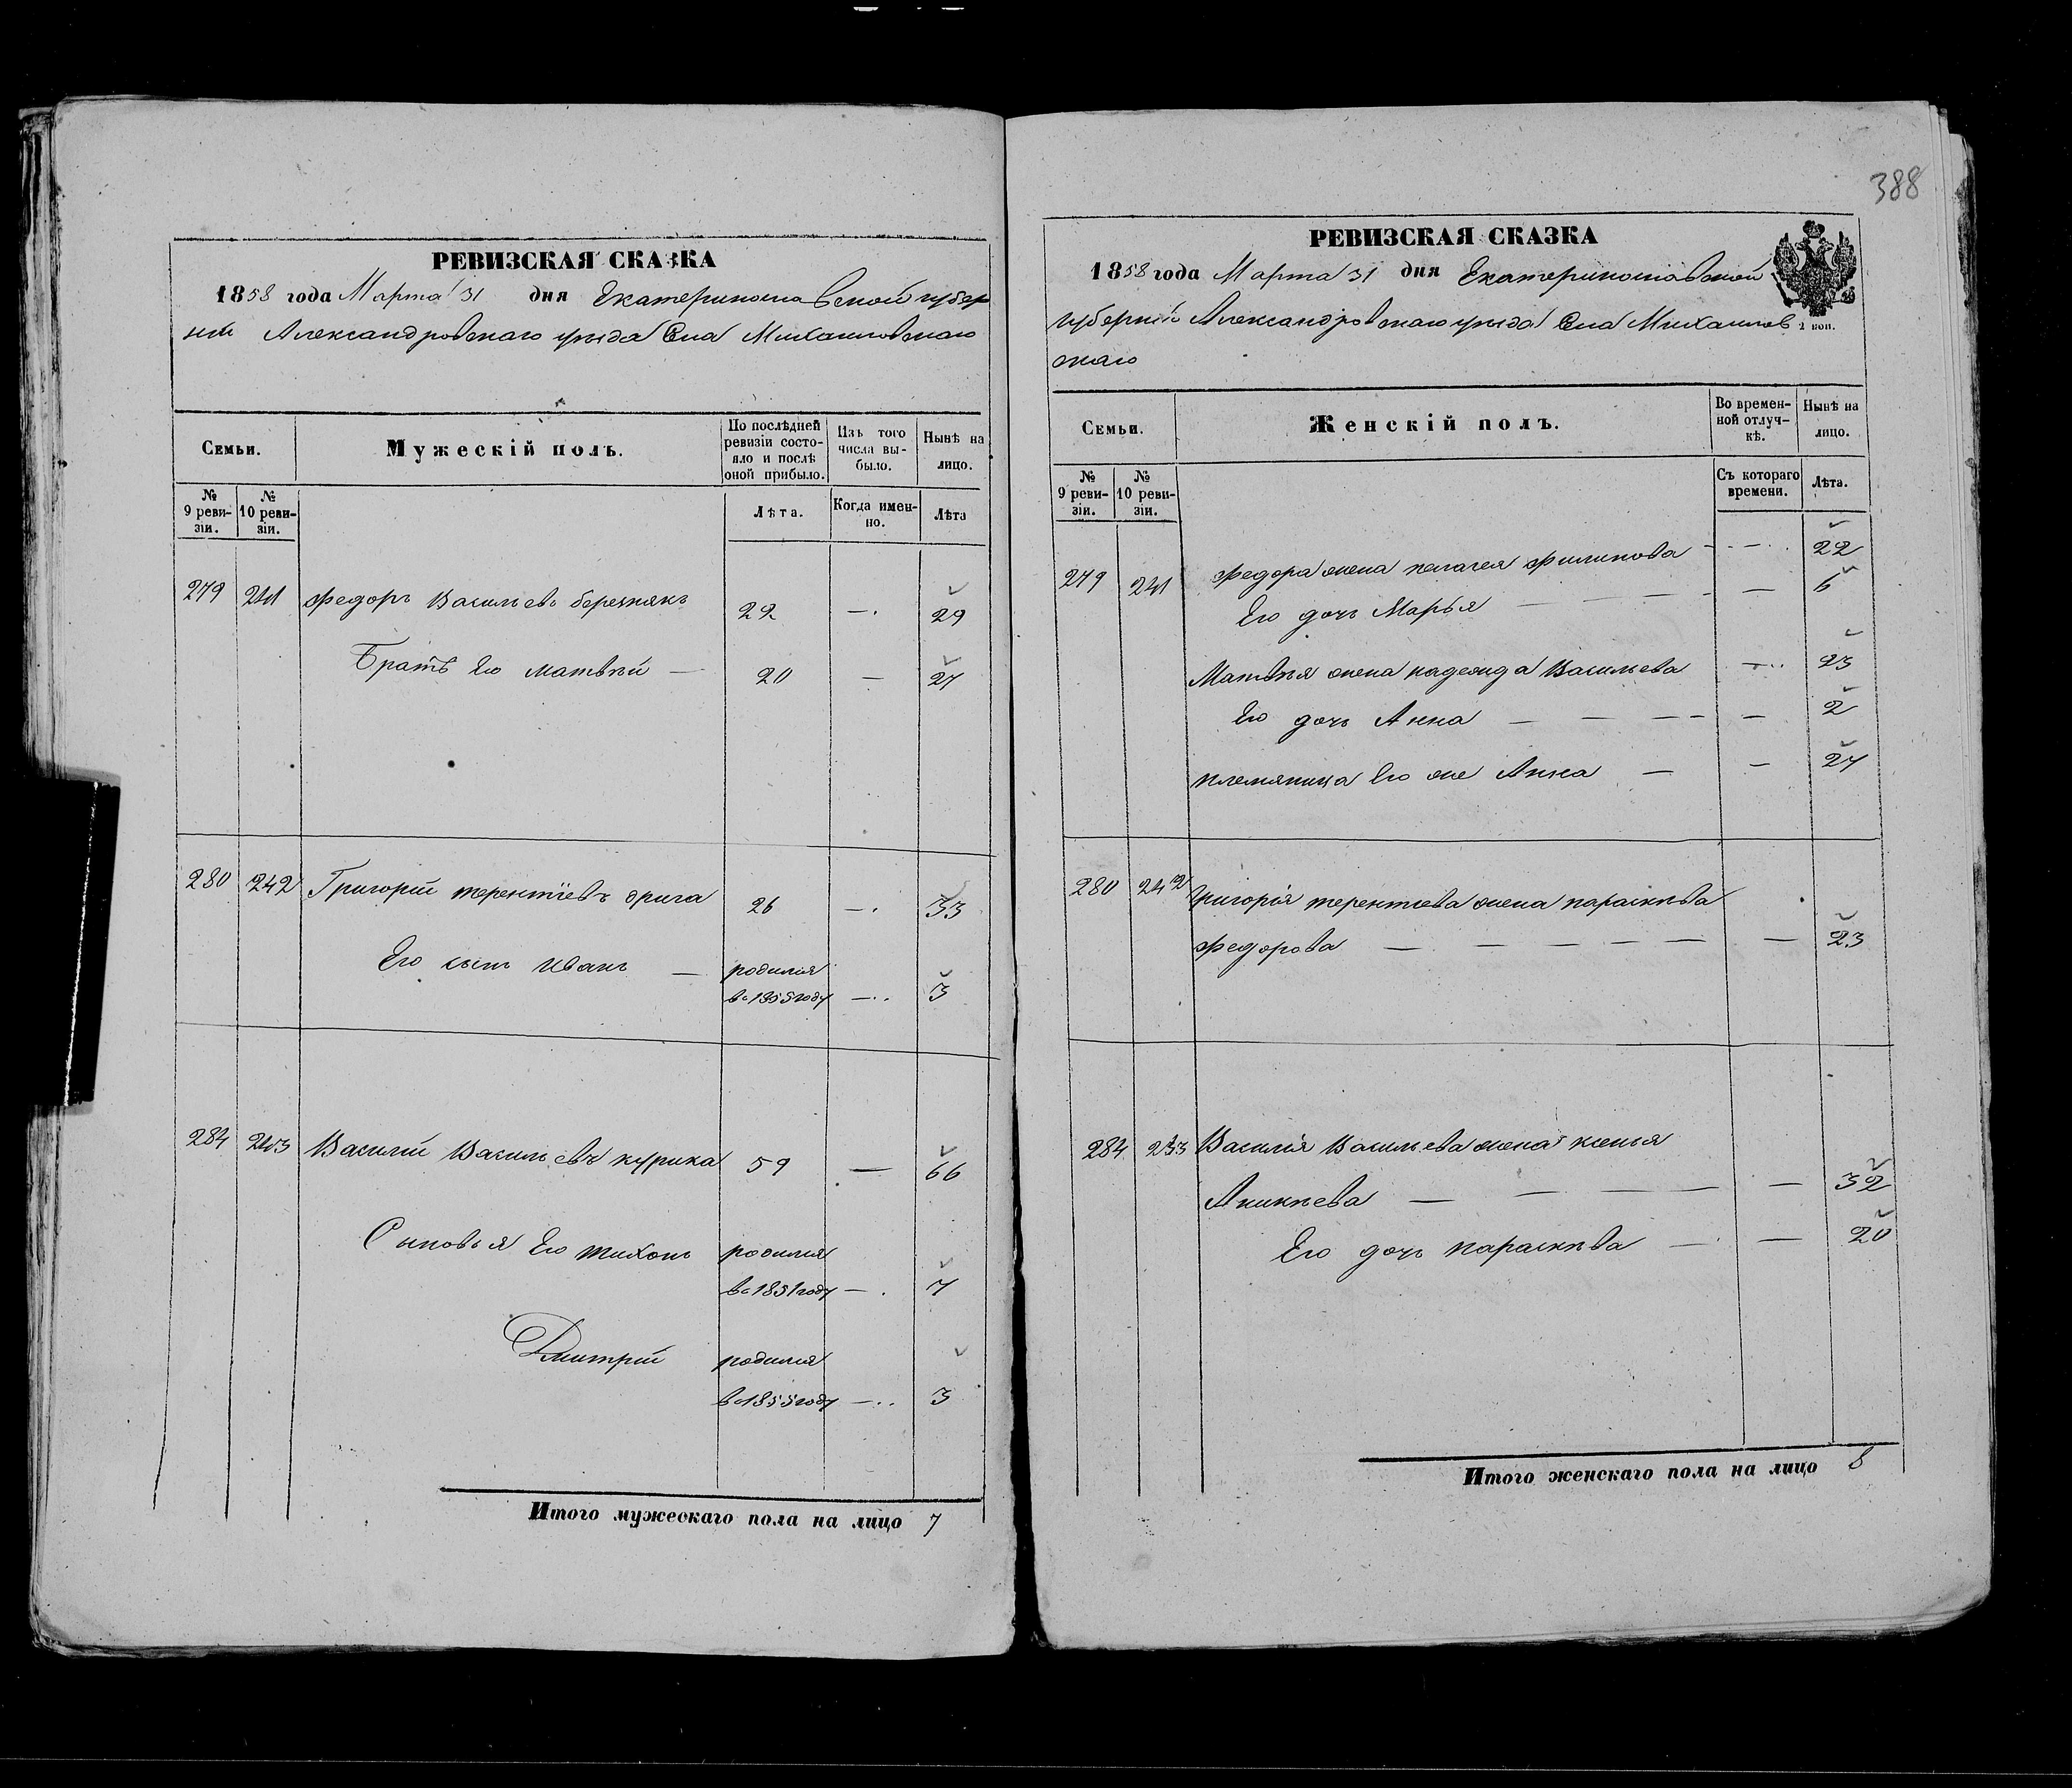 388
РЕВИЗСКАЯ СКАЗКА
1858 года Марта 31 дня Екатеринославской губер
нии Александровскаго уезда Села Михайловскаго
Семьи.
Мужескій полъ.
По послѣдней ревизіи состояло и послѣ оной прибыло.
Изъ того числа выбыло.
Нынѣ на лицо.
№ 9 ревизіи.
№ 10 ревизіи.
Лѣта.
Когда именно.
Лѣта
279 241 Федоръ Васильевъ березнякъ 22 —. 29
Братъ Его матвѣй — 20 — 27
280 242 Григорій терентіевъ 26 —. 33
Его сынъ иванъ — родился
въ 1855 году —.. 3
284 243 Василій Васильевъ курика 59 — 66
Сыновья Его тихонъ родился
въ 1851 году —. 7
Дмитрій родился
въ 1855 году —.. 3
Итого мужескаго пола на лицо 7
РЕВИЗСКАЯ СКАЗКА
1858 года Марта 31 дня Екатеринославской
губерніи Александровскаго уезда Села Михайлов
скаго
2 коп.
Семьи.
Женскій полъ.
Во временной отлучкѣ.
Нынѣ на лицо.
№ 9 ревизіи.
№ 10 ревизіи.
Съ котораго времени.
Лѣта.
279 241 Федора жена пелагея филипова 22
Его дочь Марья — 6
Матвѣя жена надежда Васильева 23
Его дочь Анна — 2
племяница Его же Анна — — 27
280 242 Григорія терентіева жена параскѣва
федорова — 23
284 233 Василія Васильева жена ксенія
Аникѣева — 32
Его дочь параскѣва — — 20
Итого женскаго пола на лицо 8